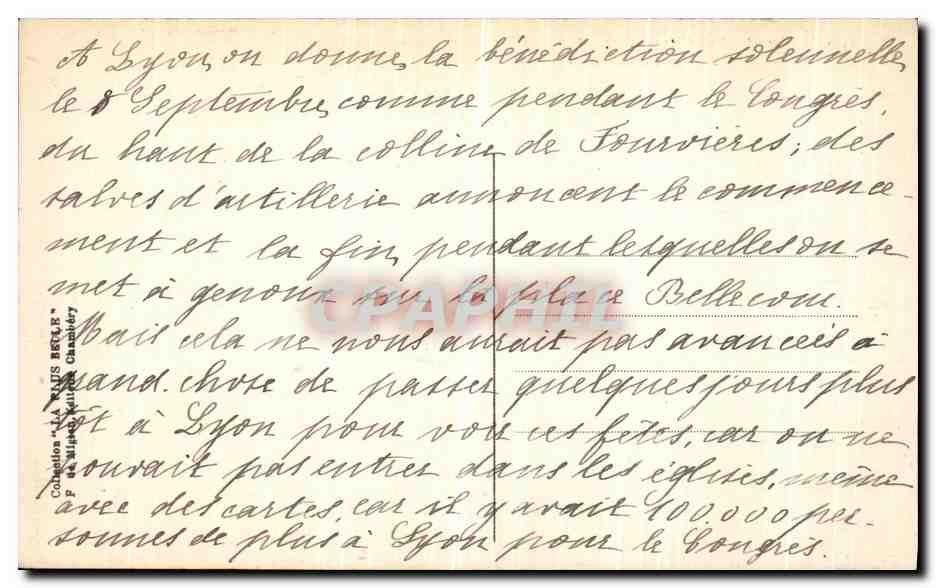 A Lyon, on donne la bénédiction solennelle
le 8 Septembre, comme pendant le Congrès,
du haut de la colline de Fourvières; des
salves d'artillerie annoncent le commence-
ment et la fin, pendant lesquelles on se
met à genoux sur la place Bellecour.
Mais cela ne nous aurait pas avancées à
grand chose de passer quelques jours plus
tôt à Lyon pour voir ces fêtes, car on ne
pouvait pas entrer dans les églises, même
avec des cartes, car il y avait 100.000 per-
sonnes de plus à Lyon pour le Congrès.
Collection "LA PLUS BELLE"
Chambéry
CPAPHIL